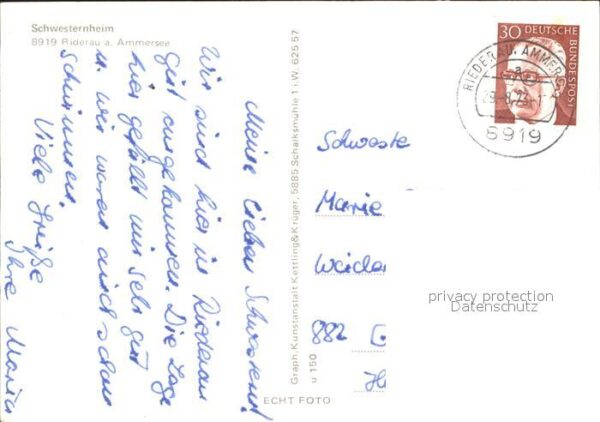 Schwesternheim
8919 Riderau a. Ammersee
Meine lieben Schwestern!
Wir sind hier in Riederau
gut angekommen. Die Lage
hier gefällt mir sehr gut
u. wir waren auch schon
schwimmen.
Viele Grüße
Ihre Maria
Graph. Kunstanstalt Kettling & Krüger, 5885 Schalksmühle 1 i.W. 625 57
u 150
ECHT FOTO
30 DEUTSCHE
BUNDESPOST
RIEDERAU, AMMERSEE
a
8919
Schweste
Marie
Weiden
882
privacy protection
Datenschutz